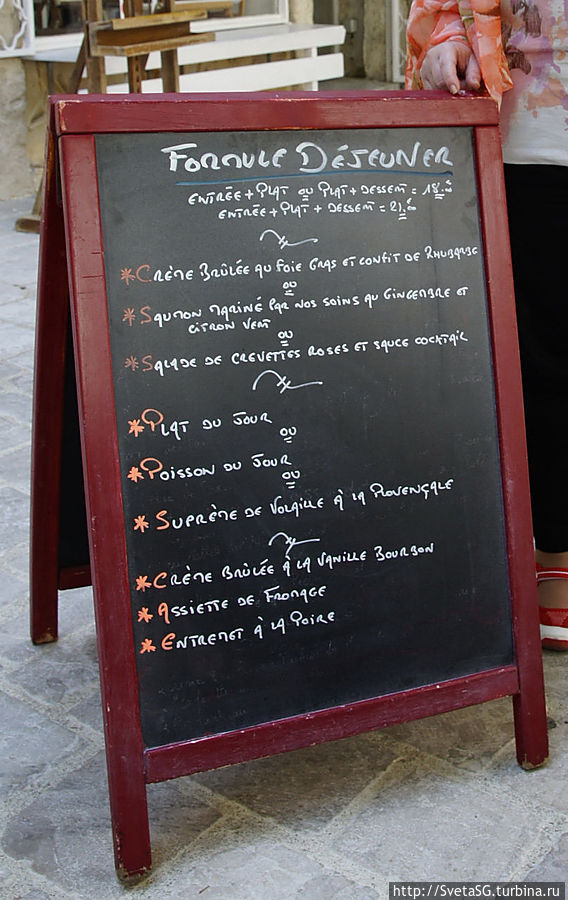 FORMULE DÉJEUNER
ENTRÉE + PLAT OU PLAT + DESSERT = 18.€
ENTRÉE + PLAT + DESSERT = 21.€
* CRÈME BRÛLÉE AU FOIE GRAS ET CONFIT DE RHUBARBE
OU
* SAUMON MARINÉ PAR NOS SOINS AU GINGEMBRE ET
CITRON VERT
OU
* SALADE DE CREVETTES ROSES ET SAUCE COCKTAIL
* PLAT DU JOUR
OU
* POISSON DU JOUR
OU
* SUPRÊME DE VOLAILLE À LA PROVENÇALE
* CRÈME BRÛLÉE À LA VANILLE BOURBON
* ASSIETTE DE FROMAGE
* ENTREMET À LA POIRE
http://SvetaSG.turbina.ru